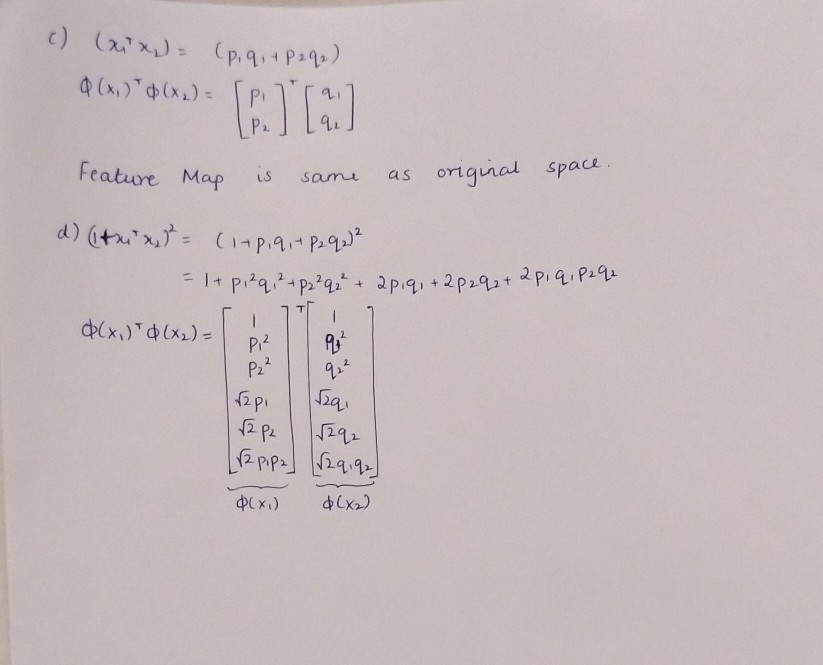 c) (x₁ᵀx₂) = (p₁q₁ + p₂q₂)
Φ(x₁)ᵀΦ(x₂) = [p₁ p₂]ᵀ [q₁ q₂]
Feature Map is same as original space.
d) (1+x₁ᵀx₂)² = (1+p₁q₁+p₂q₂)²
= 1 + p₁²q₁² + p₂²q₂² + 2p₁q₁ + 2p₂q₂ + 2p₁q₁p₂q₂
Φ(x₁)ᵀΦ(x₂) = [1 p₁² p₂² √2p₁ √2p₂ √2p₁p₂]ᵀ [1 q₁² q₂² √2q₁ √2q₂ √2q₁q₂]
Φ(x₁) Φ(x₂)